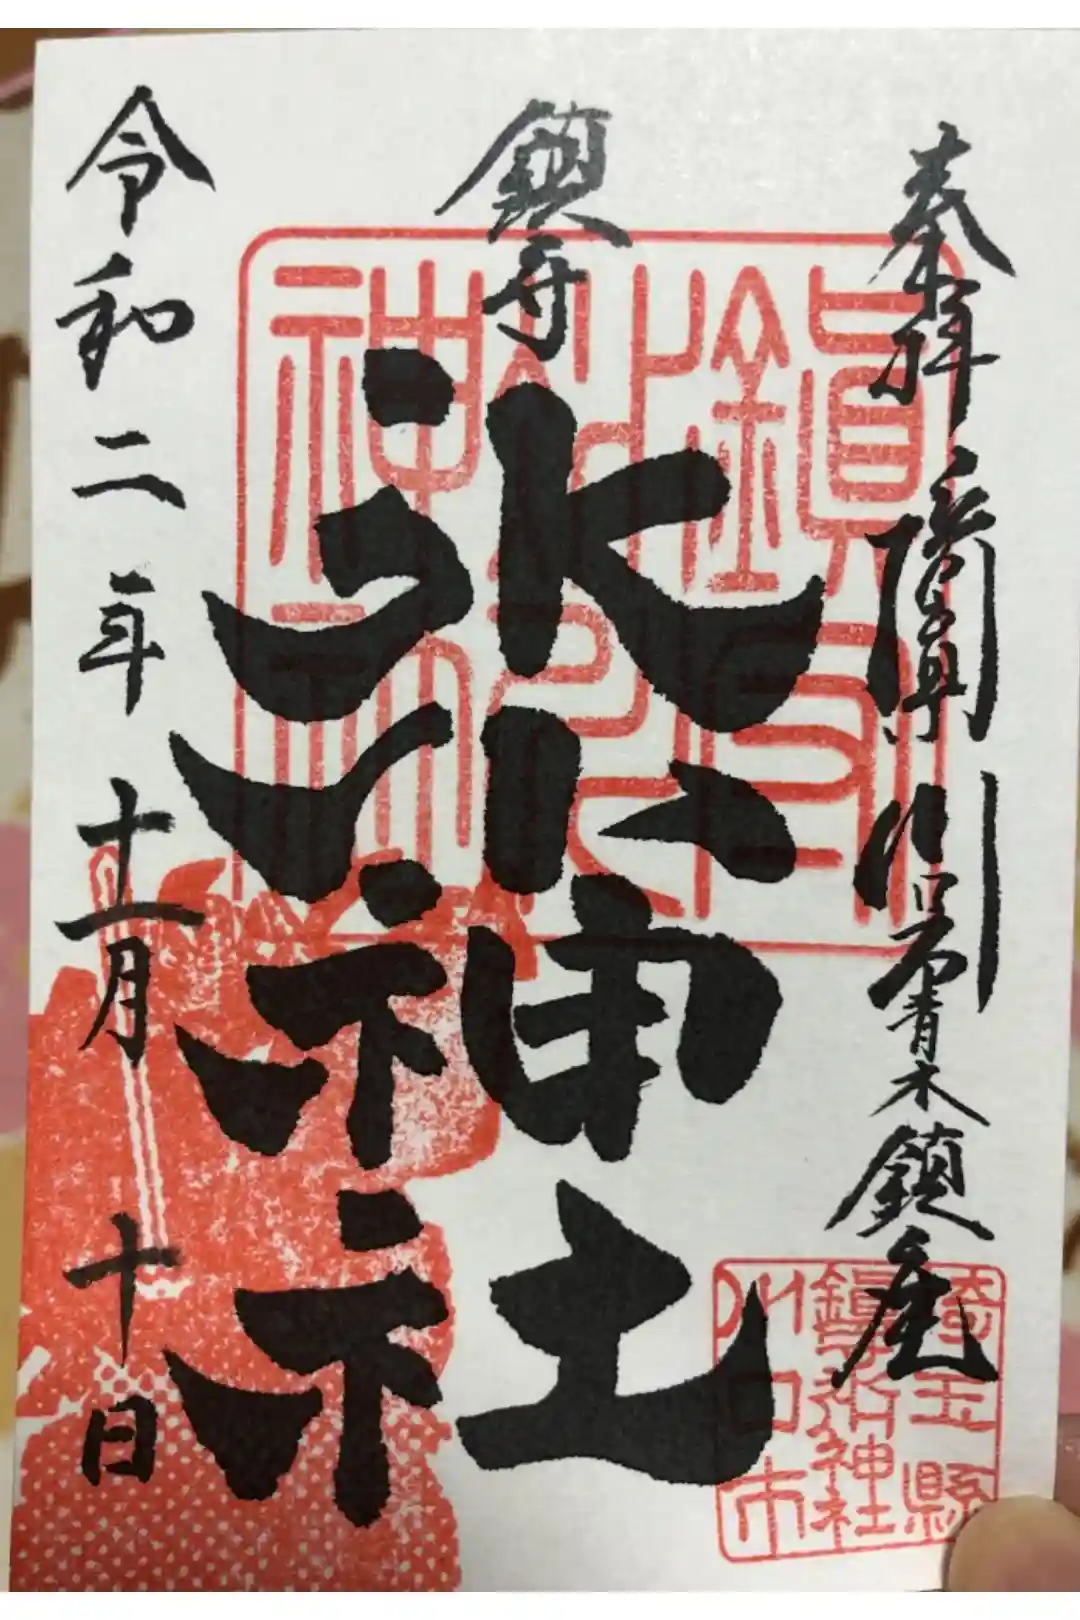 奉拝
川口
青木
鎮座
鎮守
氷川神社
令和二年十一月十日
鎮守氷川神社
埼玉縣
鎮守氷川神社
川口市